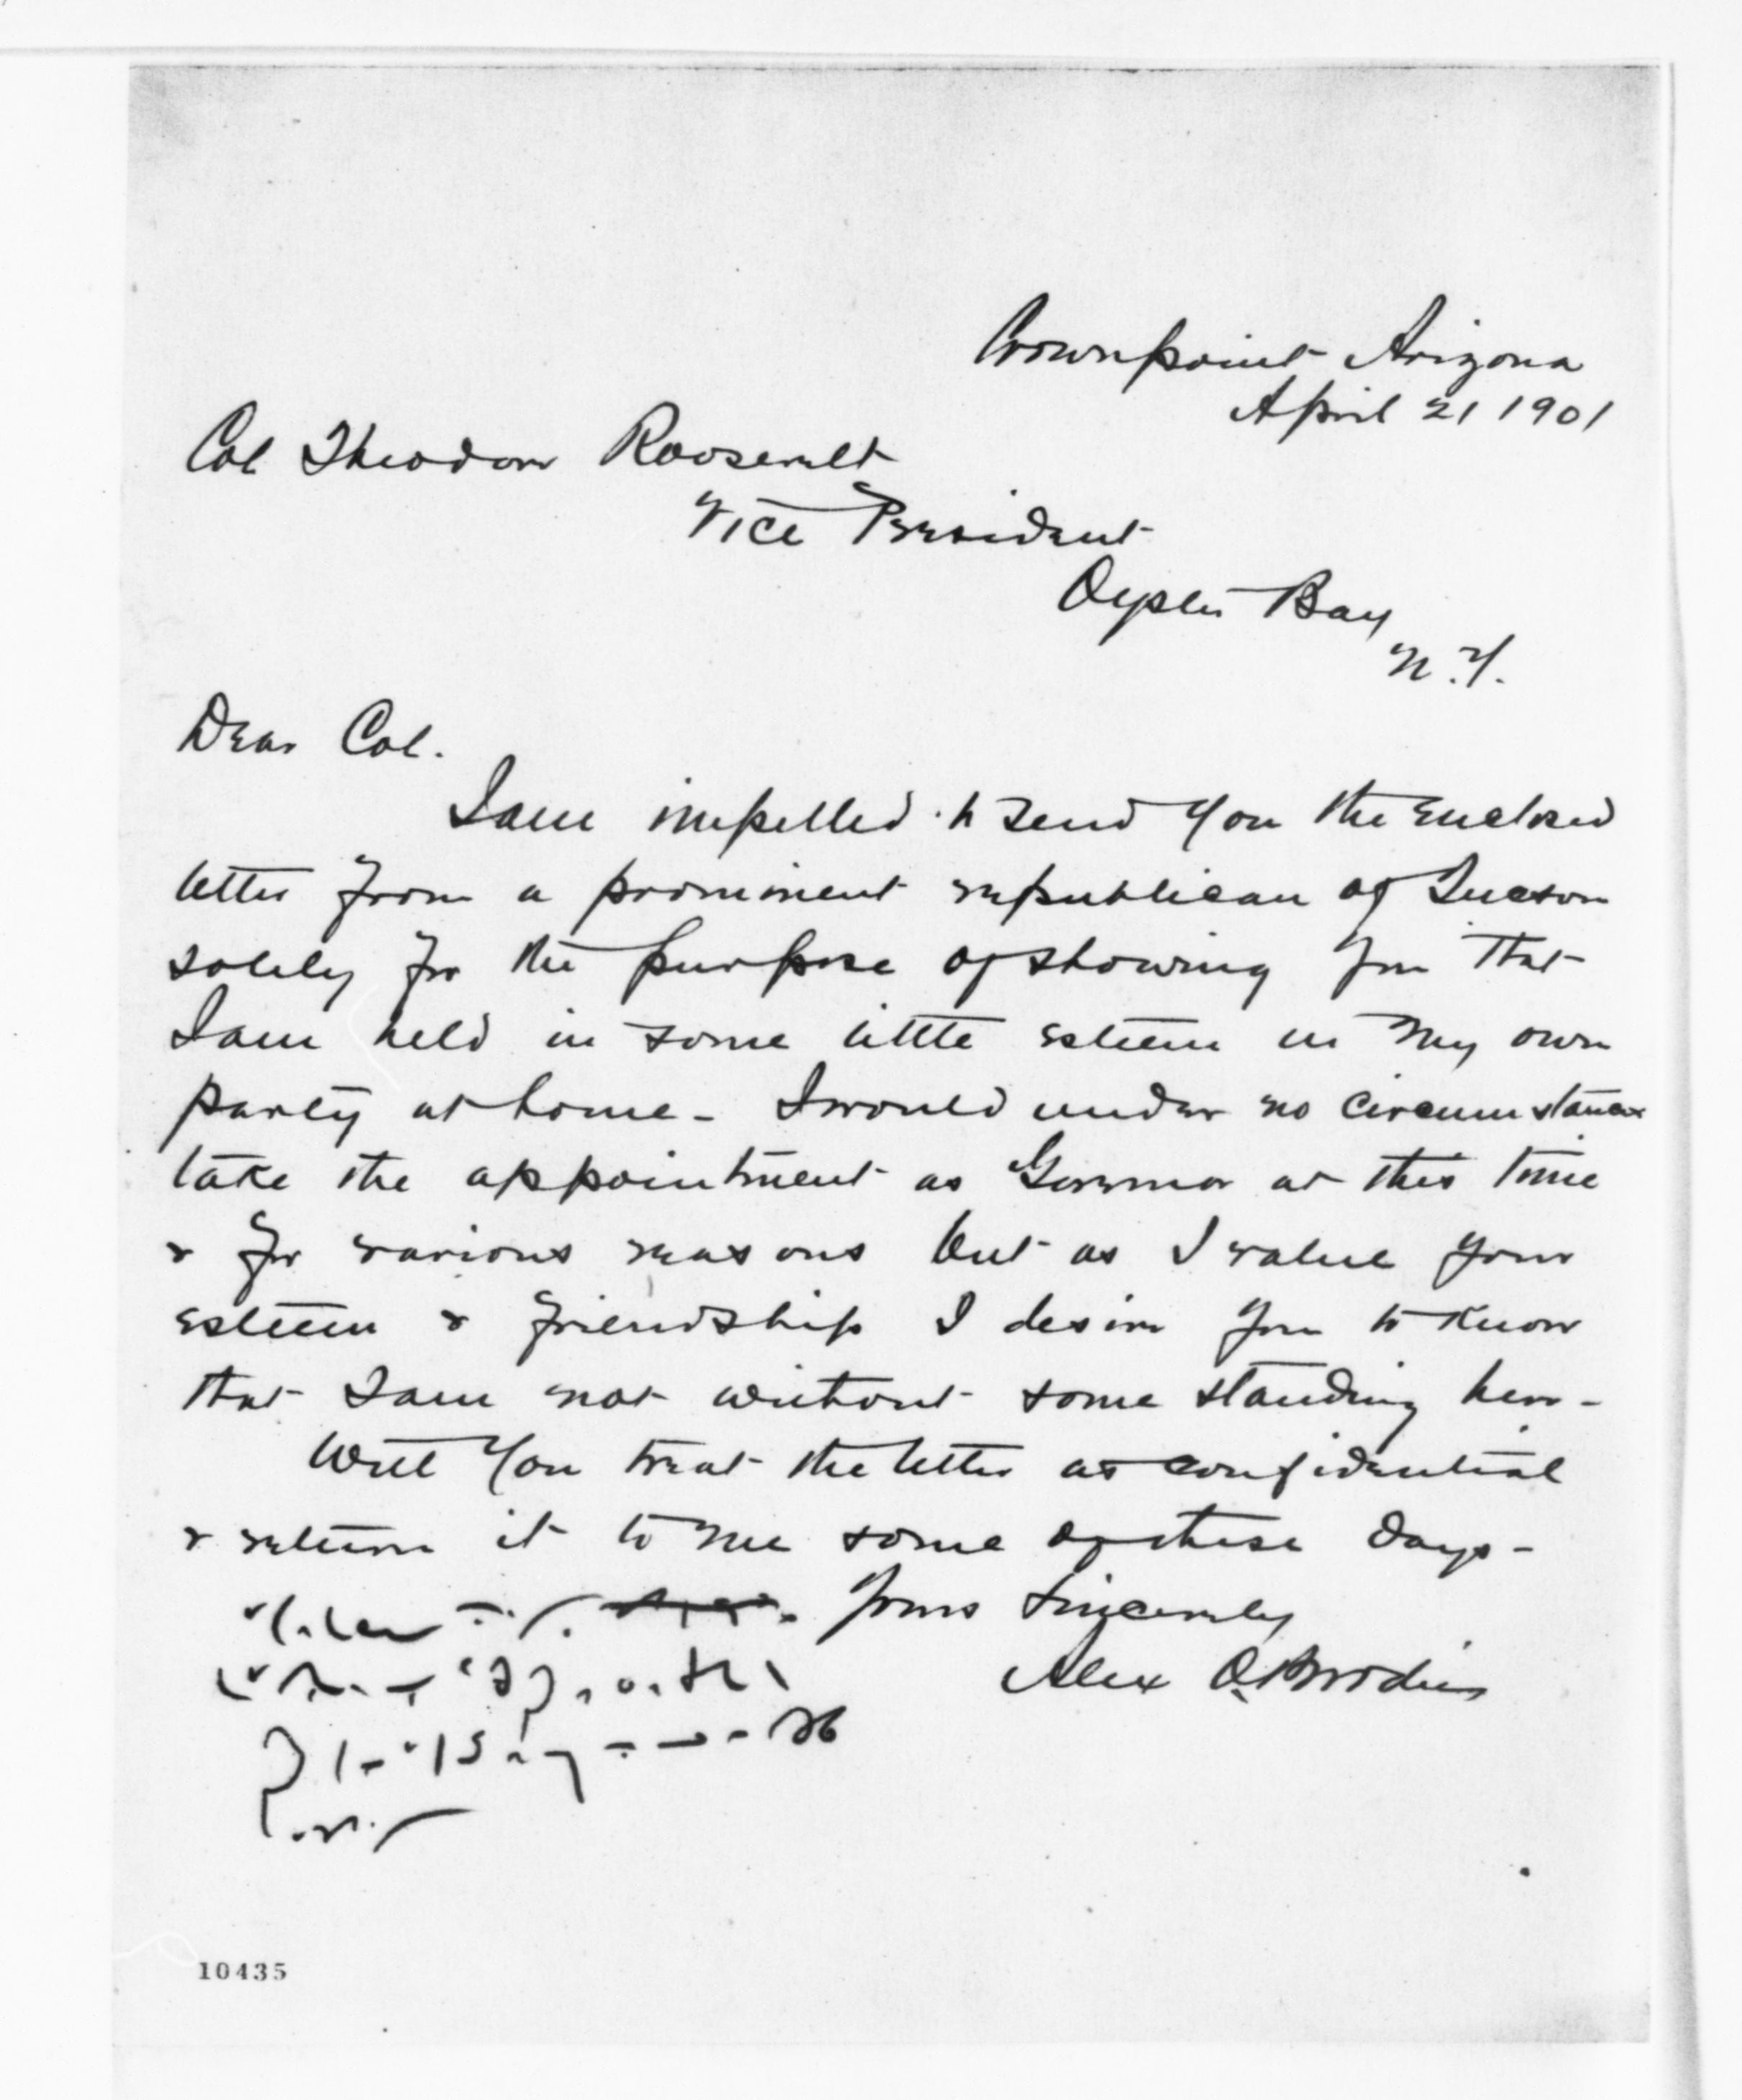 Crownpoint Arizona
April 21 1901
Col Theodore Roosevelt
Vice President
Oyster Bay
N.Y.
Dear Col.
I am impelled to send you the enclosed
letter from a prominent republican of Tucson
solely for the purpose of showing you that
I am held in some little esteem in my own
party at home - I would under no circumstances
take the appointment as Governor at this time
& for various reasons but as I value your
esteem & friendship I desire you to know
that I am not without some standing here -
Will you treat the letter as confidential
& return it to me some of these days -
Yours Sincerely
Alex O. Brodie
10435